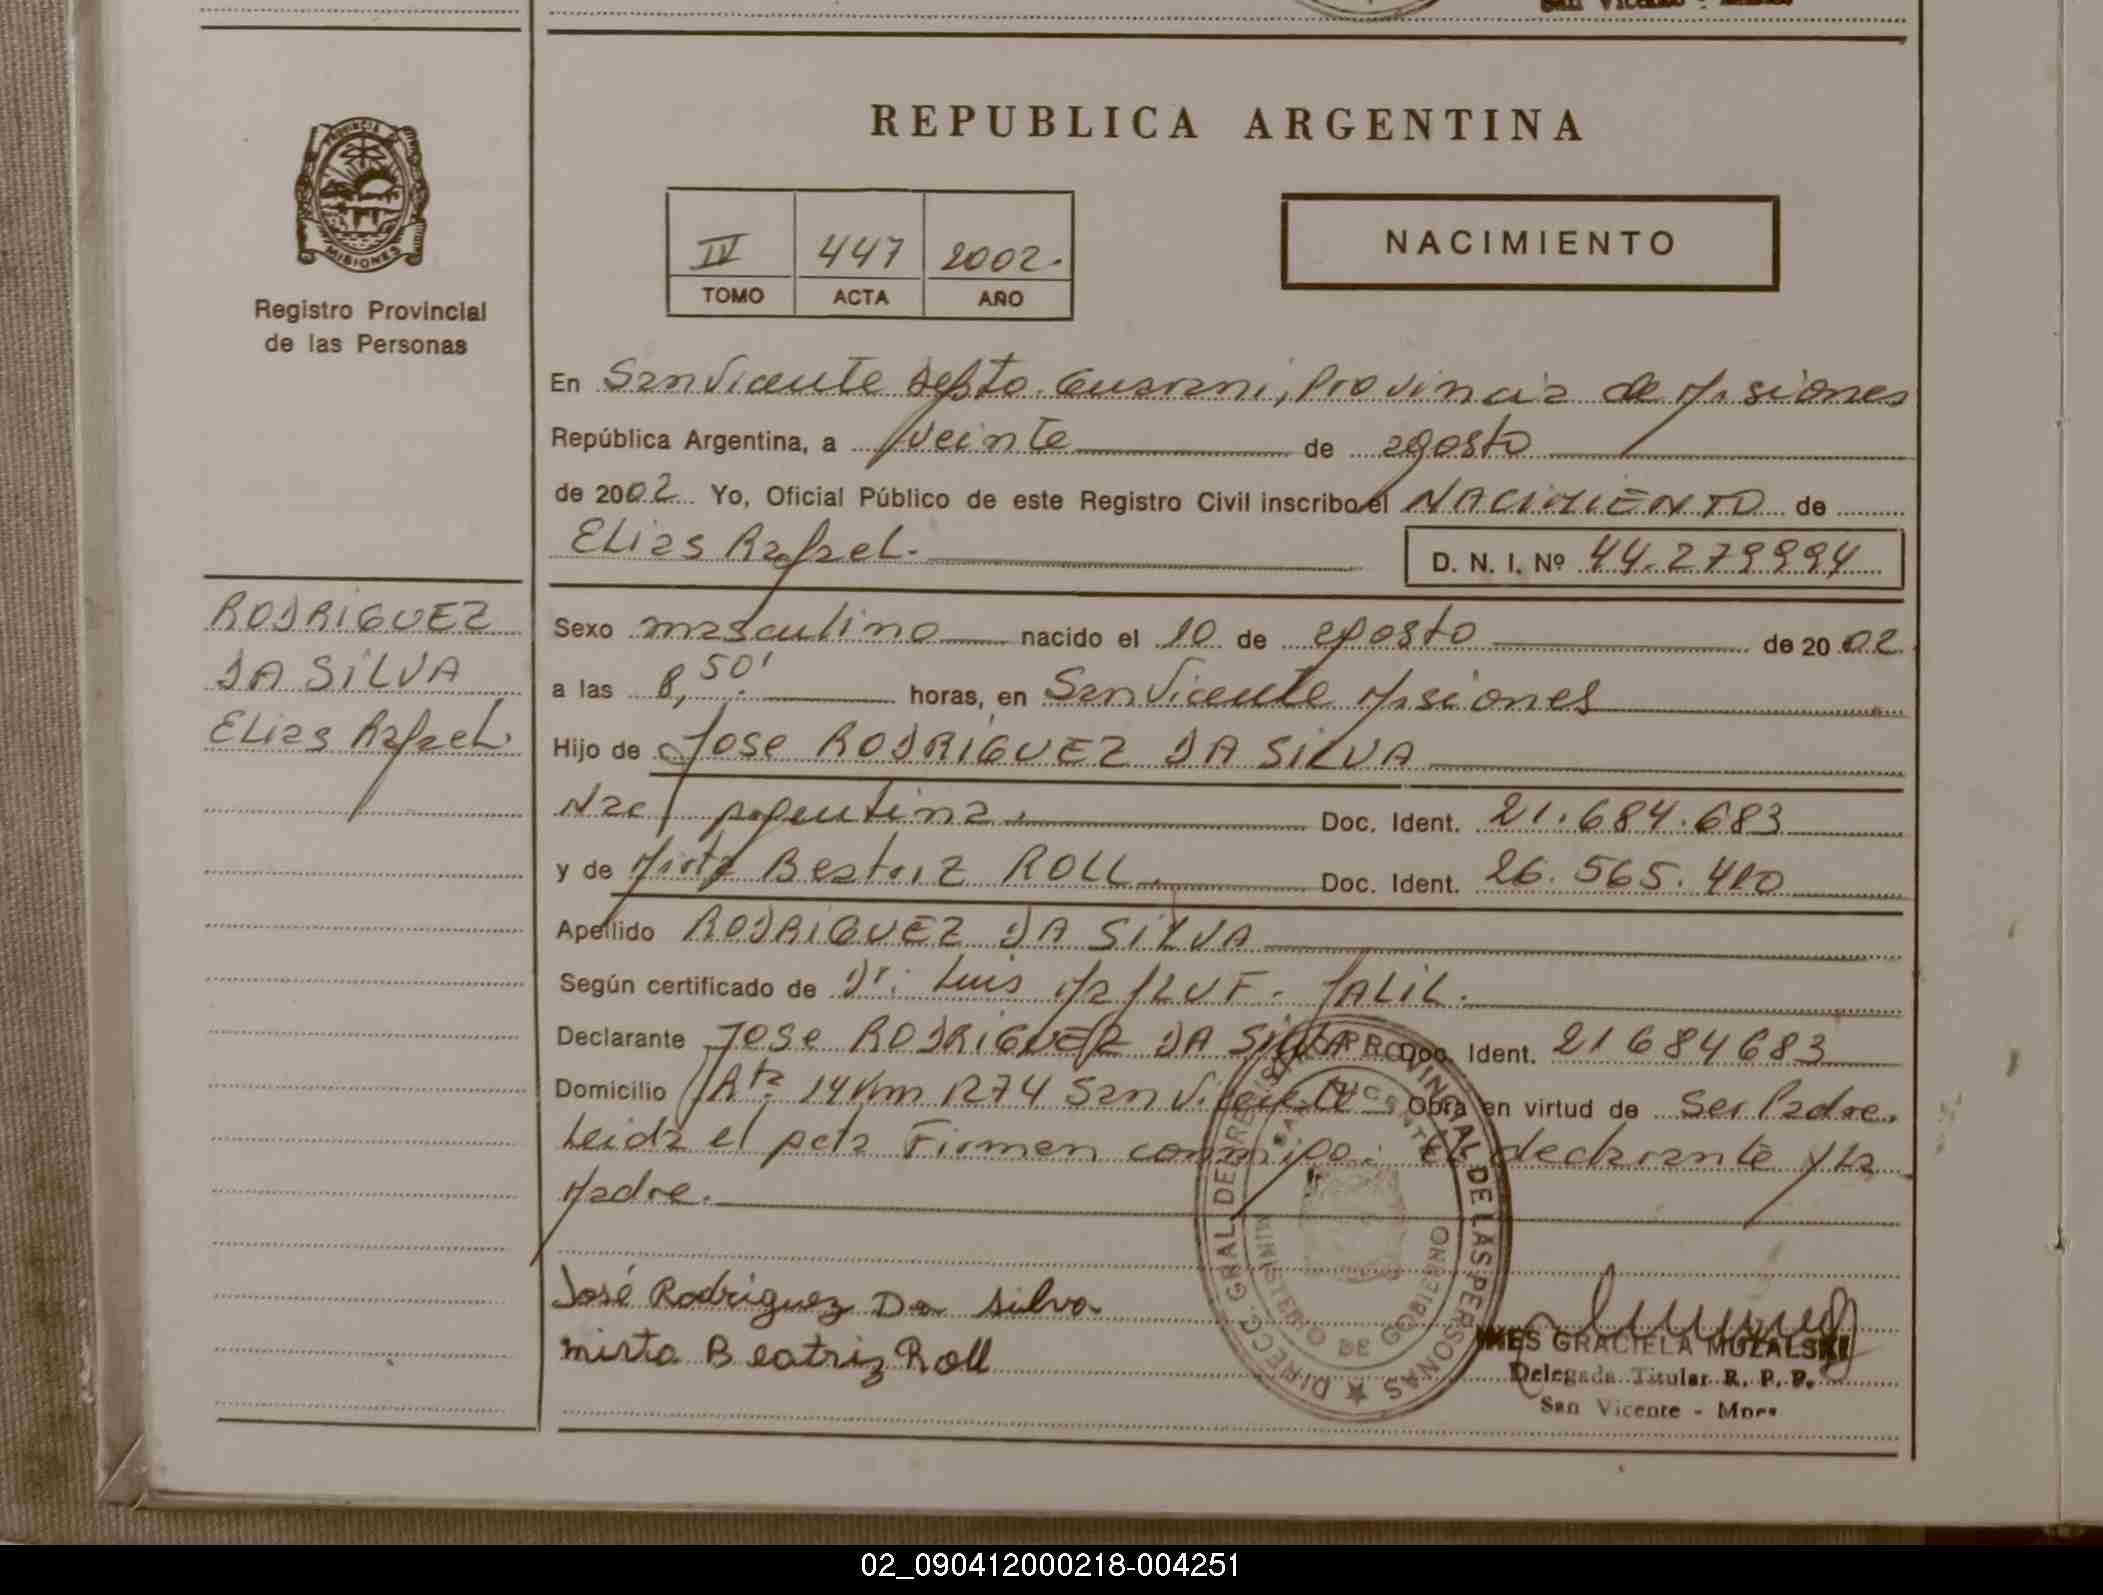 San Vicente - Mnes
REPUBLICA ARGENTINA
PROVINCIA DE
MISIONES
Registro Provincial
de las Personas
IV 447 2002.
TOMO ACTA AÑO
NACIMIENTO
En San Vicente Depto. Guarani, Provincia de Misiones
República Argentina, a veinte de agosto
de 2002 Yo, Oficial Público de este Registro Civil inscribo el NACIMIENTO de
Elias Rafael. D. N. I. Nº 44.279994
RODRIGUEZ
DA SILVA
Elias Rafael.
Sexo masculino nacido el 10 de agosto de 2002
a las 8,50' horas, en San Vicente Misiones
Hijo de Jose RODRIGUEZ DA SILVA
Nac Argentina. Doc. Ident. 21.684.683
y de Mirta Beatriz ROLL. Doc. Ident. 26.565.410
Apellido RODRIGUEZ DA SILVA
Según certificado de Dr. Luis JALIL.
Declarante JOSe RODRIGUEZ DA SILVA Doc. Ident. 21684683
Domicilio Rta 14 Km 1274 San Vicente Obra en virtud de Ser Padre.
Leida el acta Firman conmigo: El declarante y la
Madre.
José Rodriguez Da silva
mirta Beatriz Roll
DIRECC. GRAL. DEL REGISTRO PROVINCIAL DE LAS PERSONAS
SAN VICENTE
MINISTERIO DE GOBIERNO
INES GRACIELA MUZALSKI
Delegada Titular R. P. P.
San Vicente - Mnes
02_090412000218-004251